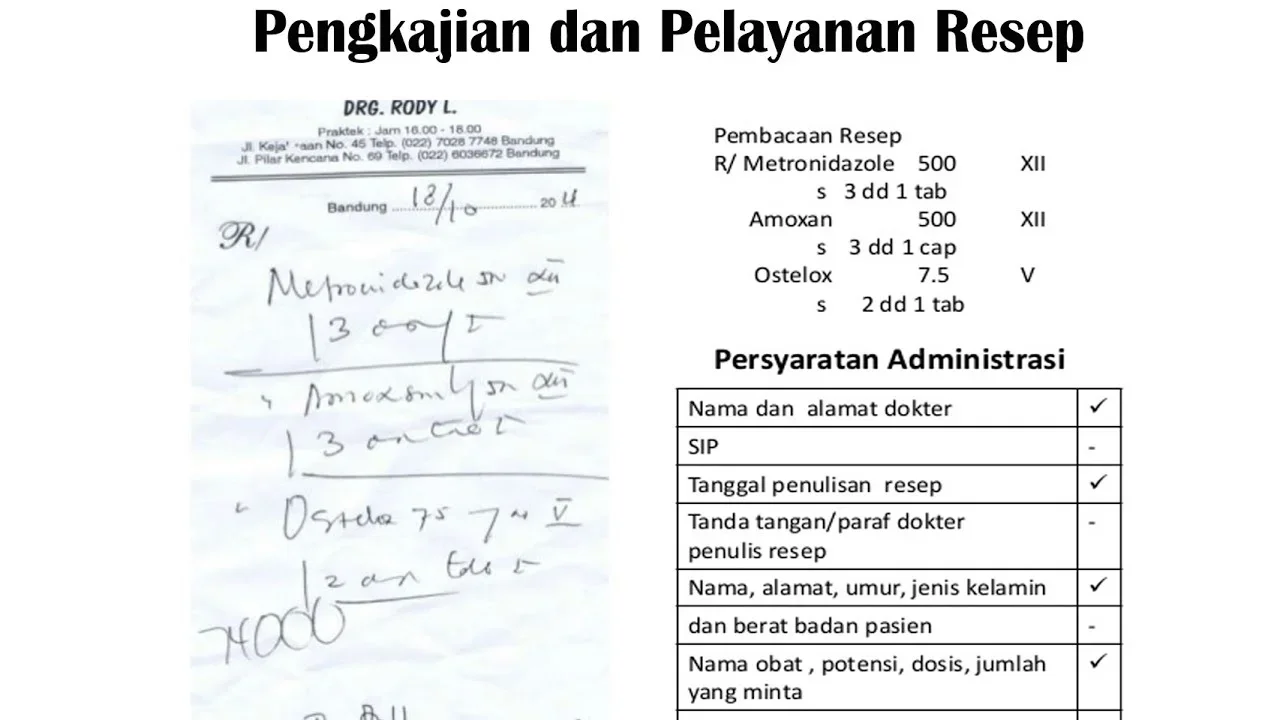 Pengkajian dan Pelayanan Resep
DRG. RODY L.
Praktek : Jam 16.00 - 18.00
No. 45 Telp. (022) 7028 7748 Bandung
Jl. Pilar Kencana No. 69 Telp. (022) 6036672 Bandung
Bandung 18/10 20
R/
Metronidazole XII
3
XII
3
V
2
74000
Pembacaan Resep
R/ Metronidazole 500 XII
s 3 dd 1 tab
Amoxan 500 XII
s 3 dd 1 cap
Ostelox 7.5 V
s 2 dd 1 tab
Persyaratan Administrasi
Nama dan alamat dokter ✓
SIP -
Tanggal penulisan resep ✓
Tanda tangan/paraf dokter -
penulis resep
Nama, alamat, umur, jenis kelamin ✓
dan berat badan pasien -
Nama obat , potensi, dosis, jumlah ✓
yang minta